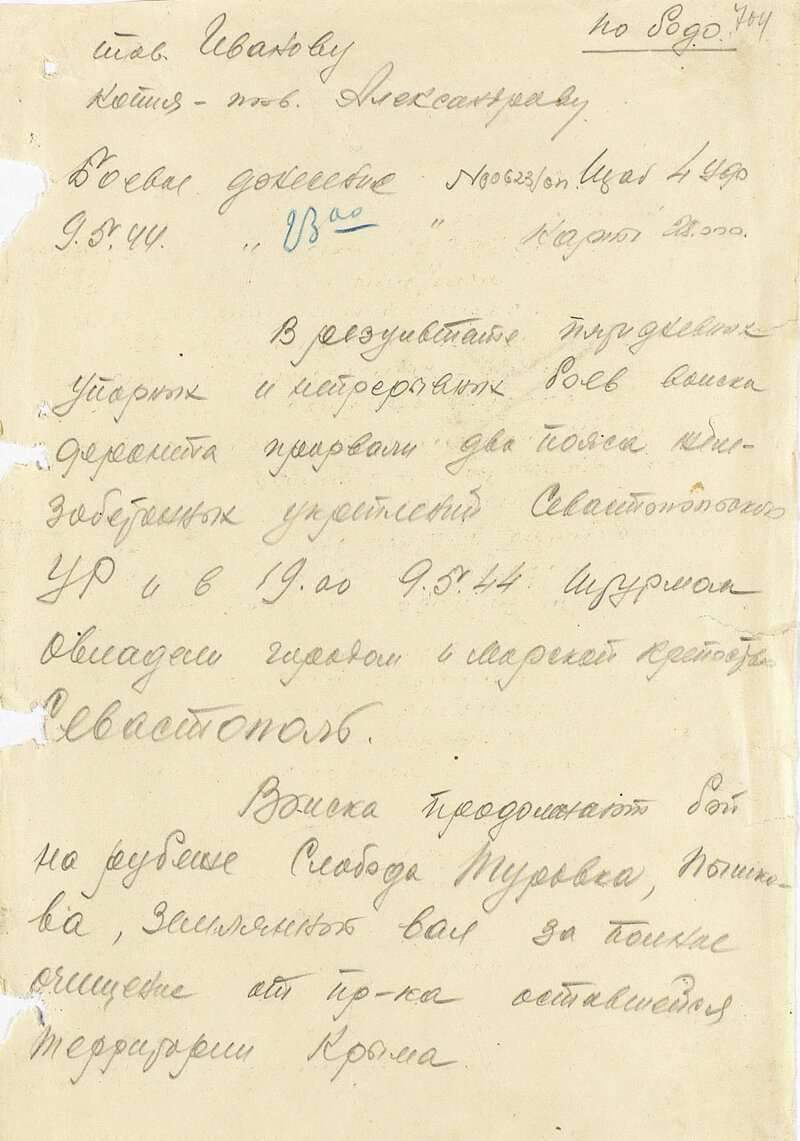 по бодо. 704
тов. Иванову
копия - тов. Александрову
Боевое донесение №00623/оп Штаб 4 Укр
9.5.44. „ 23⁰⁰ " Карты
В результате пятидневных
упорных и непрерывных боев войска
фронта прорвали два пояса желе-
зобетонных укреплений Севастопольского
УР и в 19.00 9.5.44 штурмом
овладели городом и морской крепостью
Севастополь.
Войска продолжают бой
на рубеже Слобода Туровка, Пышко-
ва, Землянной вал за полное
очищение от пр-ка оставшейся
территории Крыма